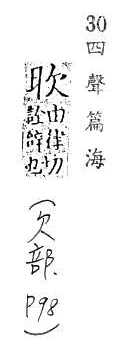 30 四聲篇海
欥由律切詮辝也
(欠部. P98)